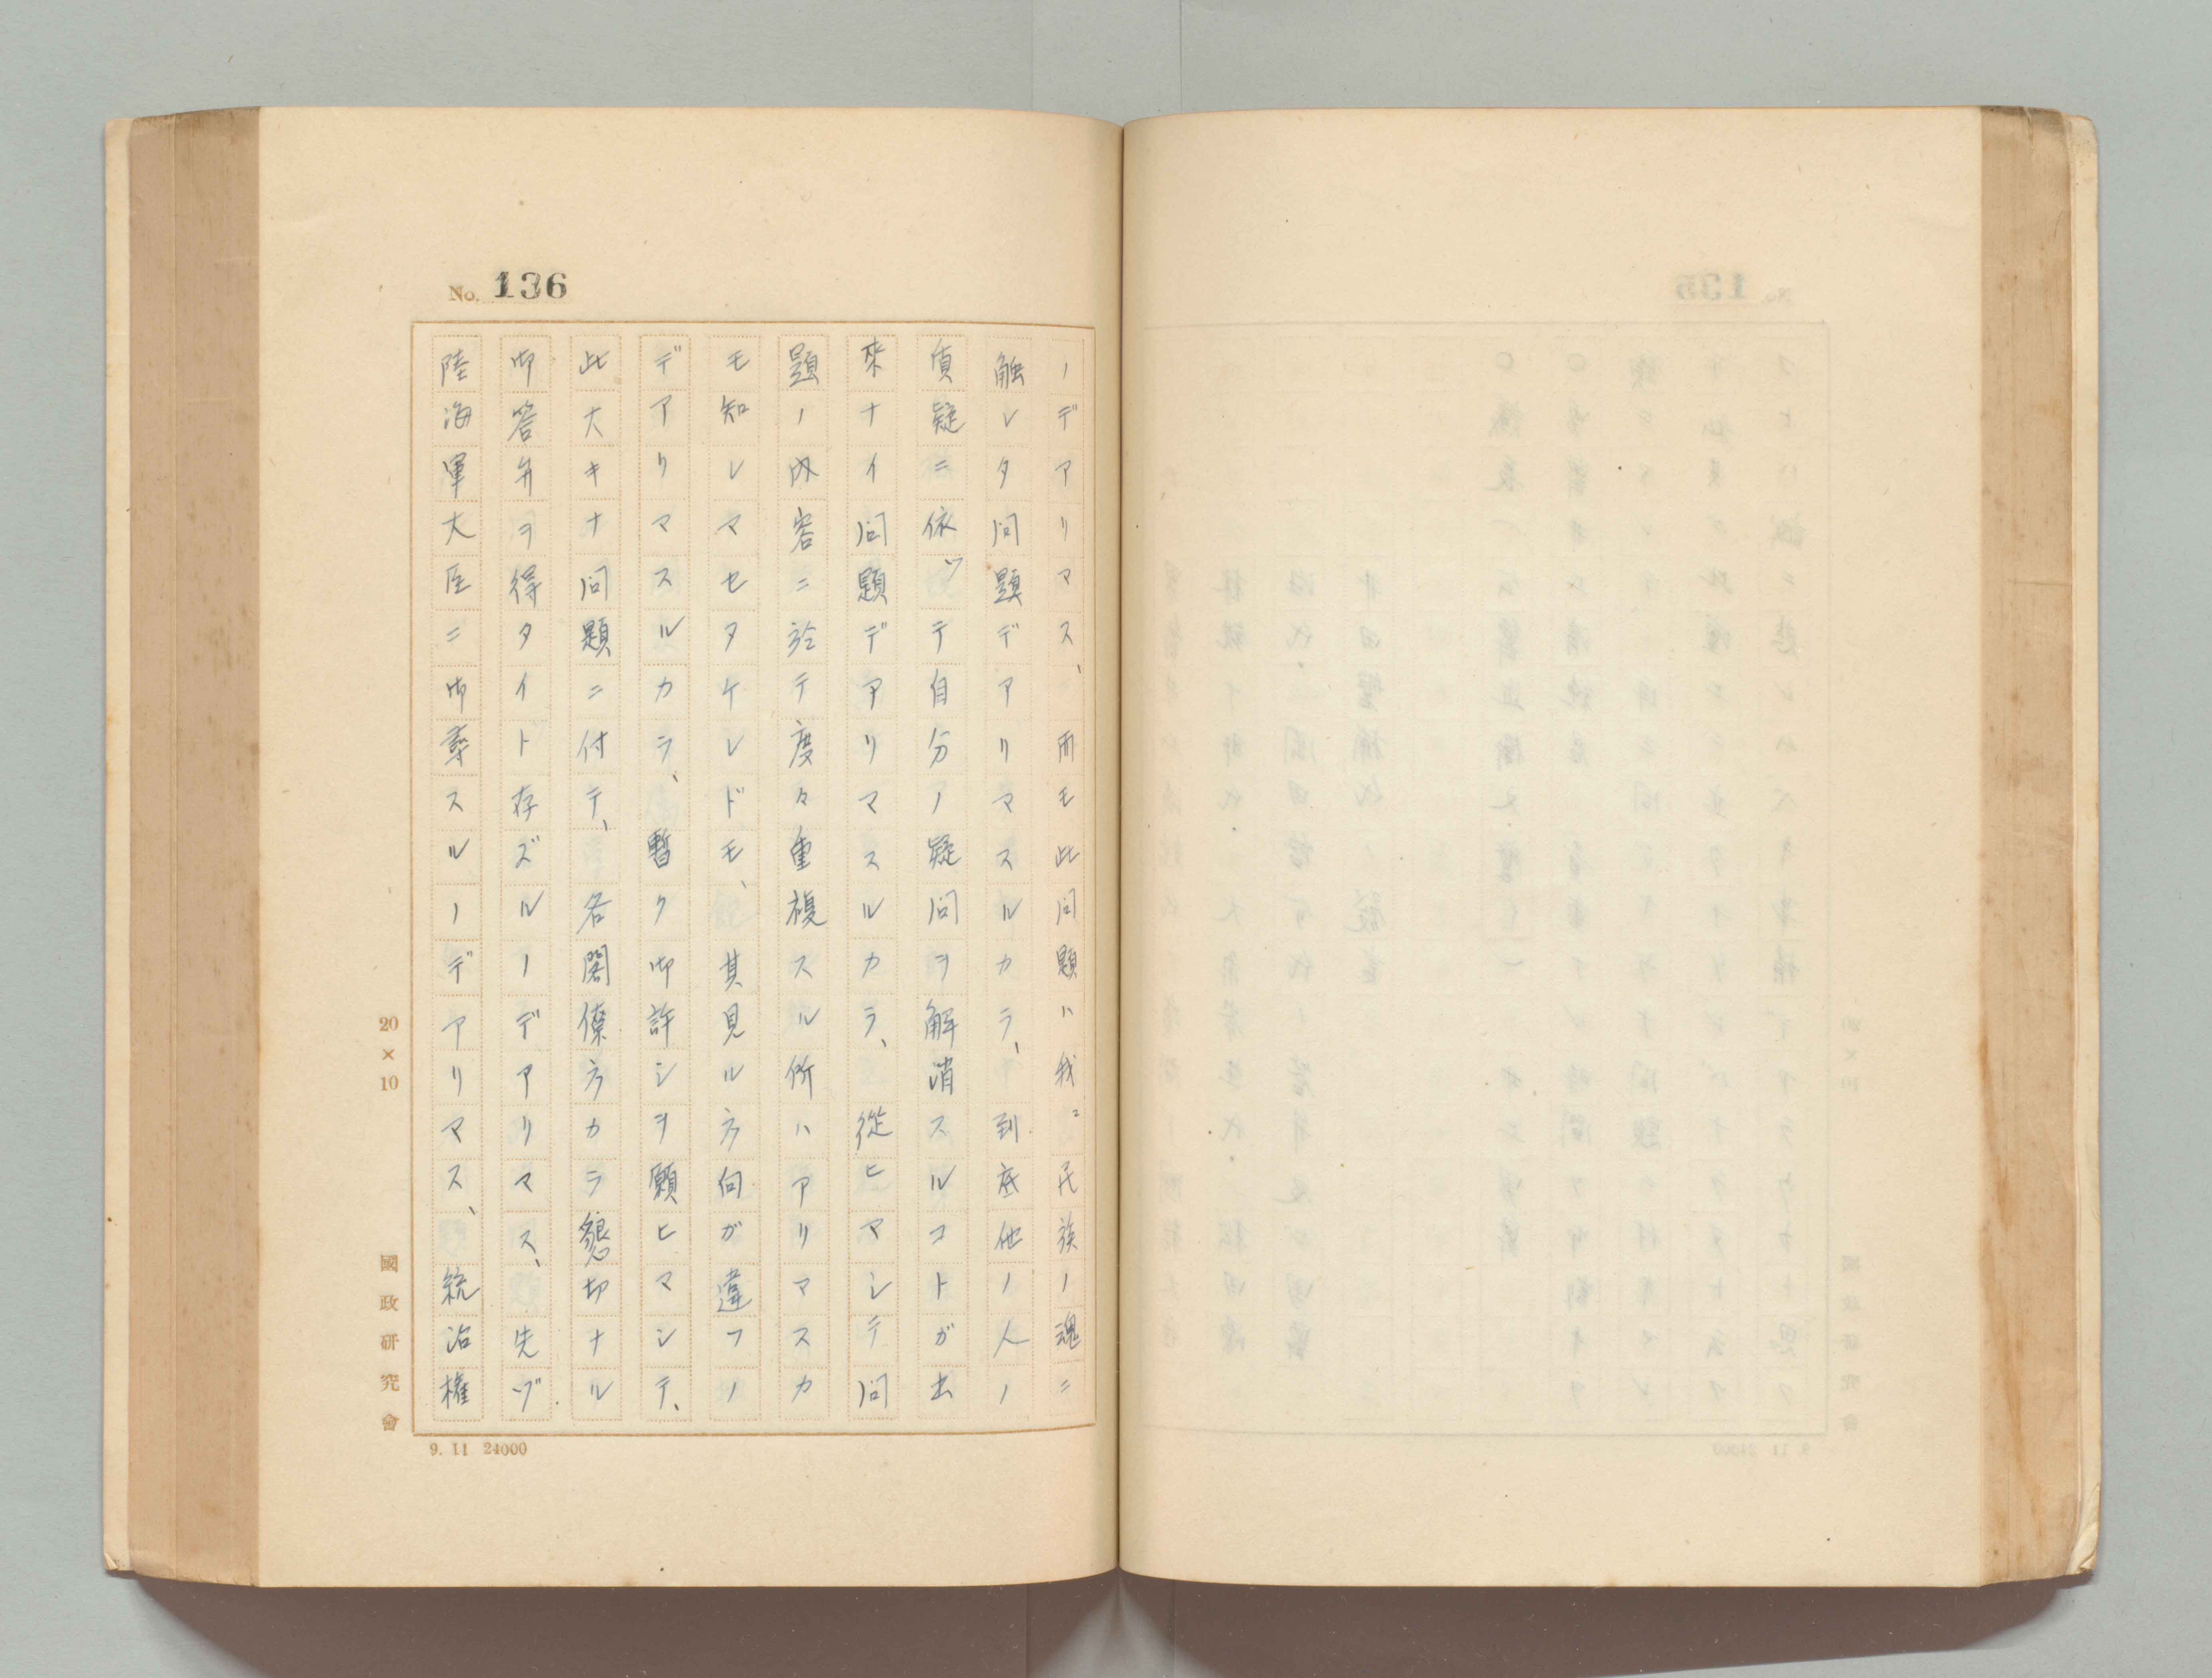 No. 136
ノデアリマス、而モ此問題ハ我〻民族ノ魂ニ
触レタ問題デアリマスルカラ、到底他ノ人ノ
質疑ニ依ツテ自分ノ疑問ヲ解消スルコトガ出
來ナイ問題デアリマスルカラ、從ヒマシテ問
題ノ内容ニ於テ度々重複スル所ハアリマスカ
モ知レマセヌケレドモ、其見ル方向ガ違フノ
デアリマスルカラ、暫ク御許シヲ願ヒマシテ、
此大キナ問題ニ付テ、各閣僚方カラ懇切ナル
御答弁ヲ得タイト存ズルノデアリマス、先ヅ
陸海軍大臣ニ御尋スルノデアリマス、統治権
20×10
國政研究會
9. 11 24000